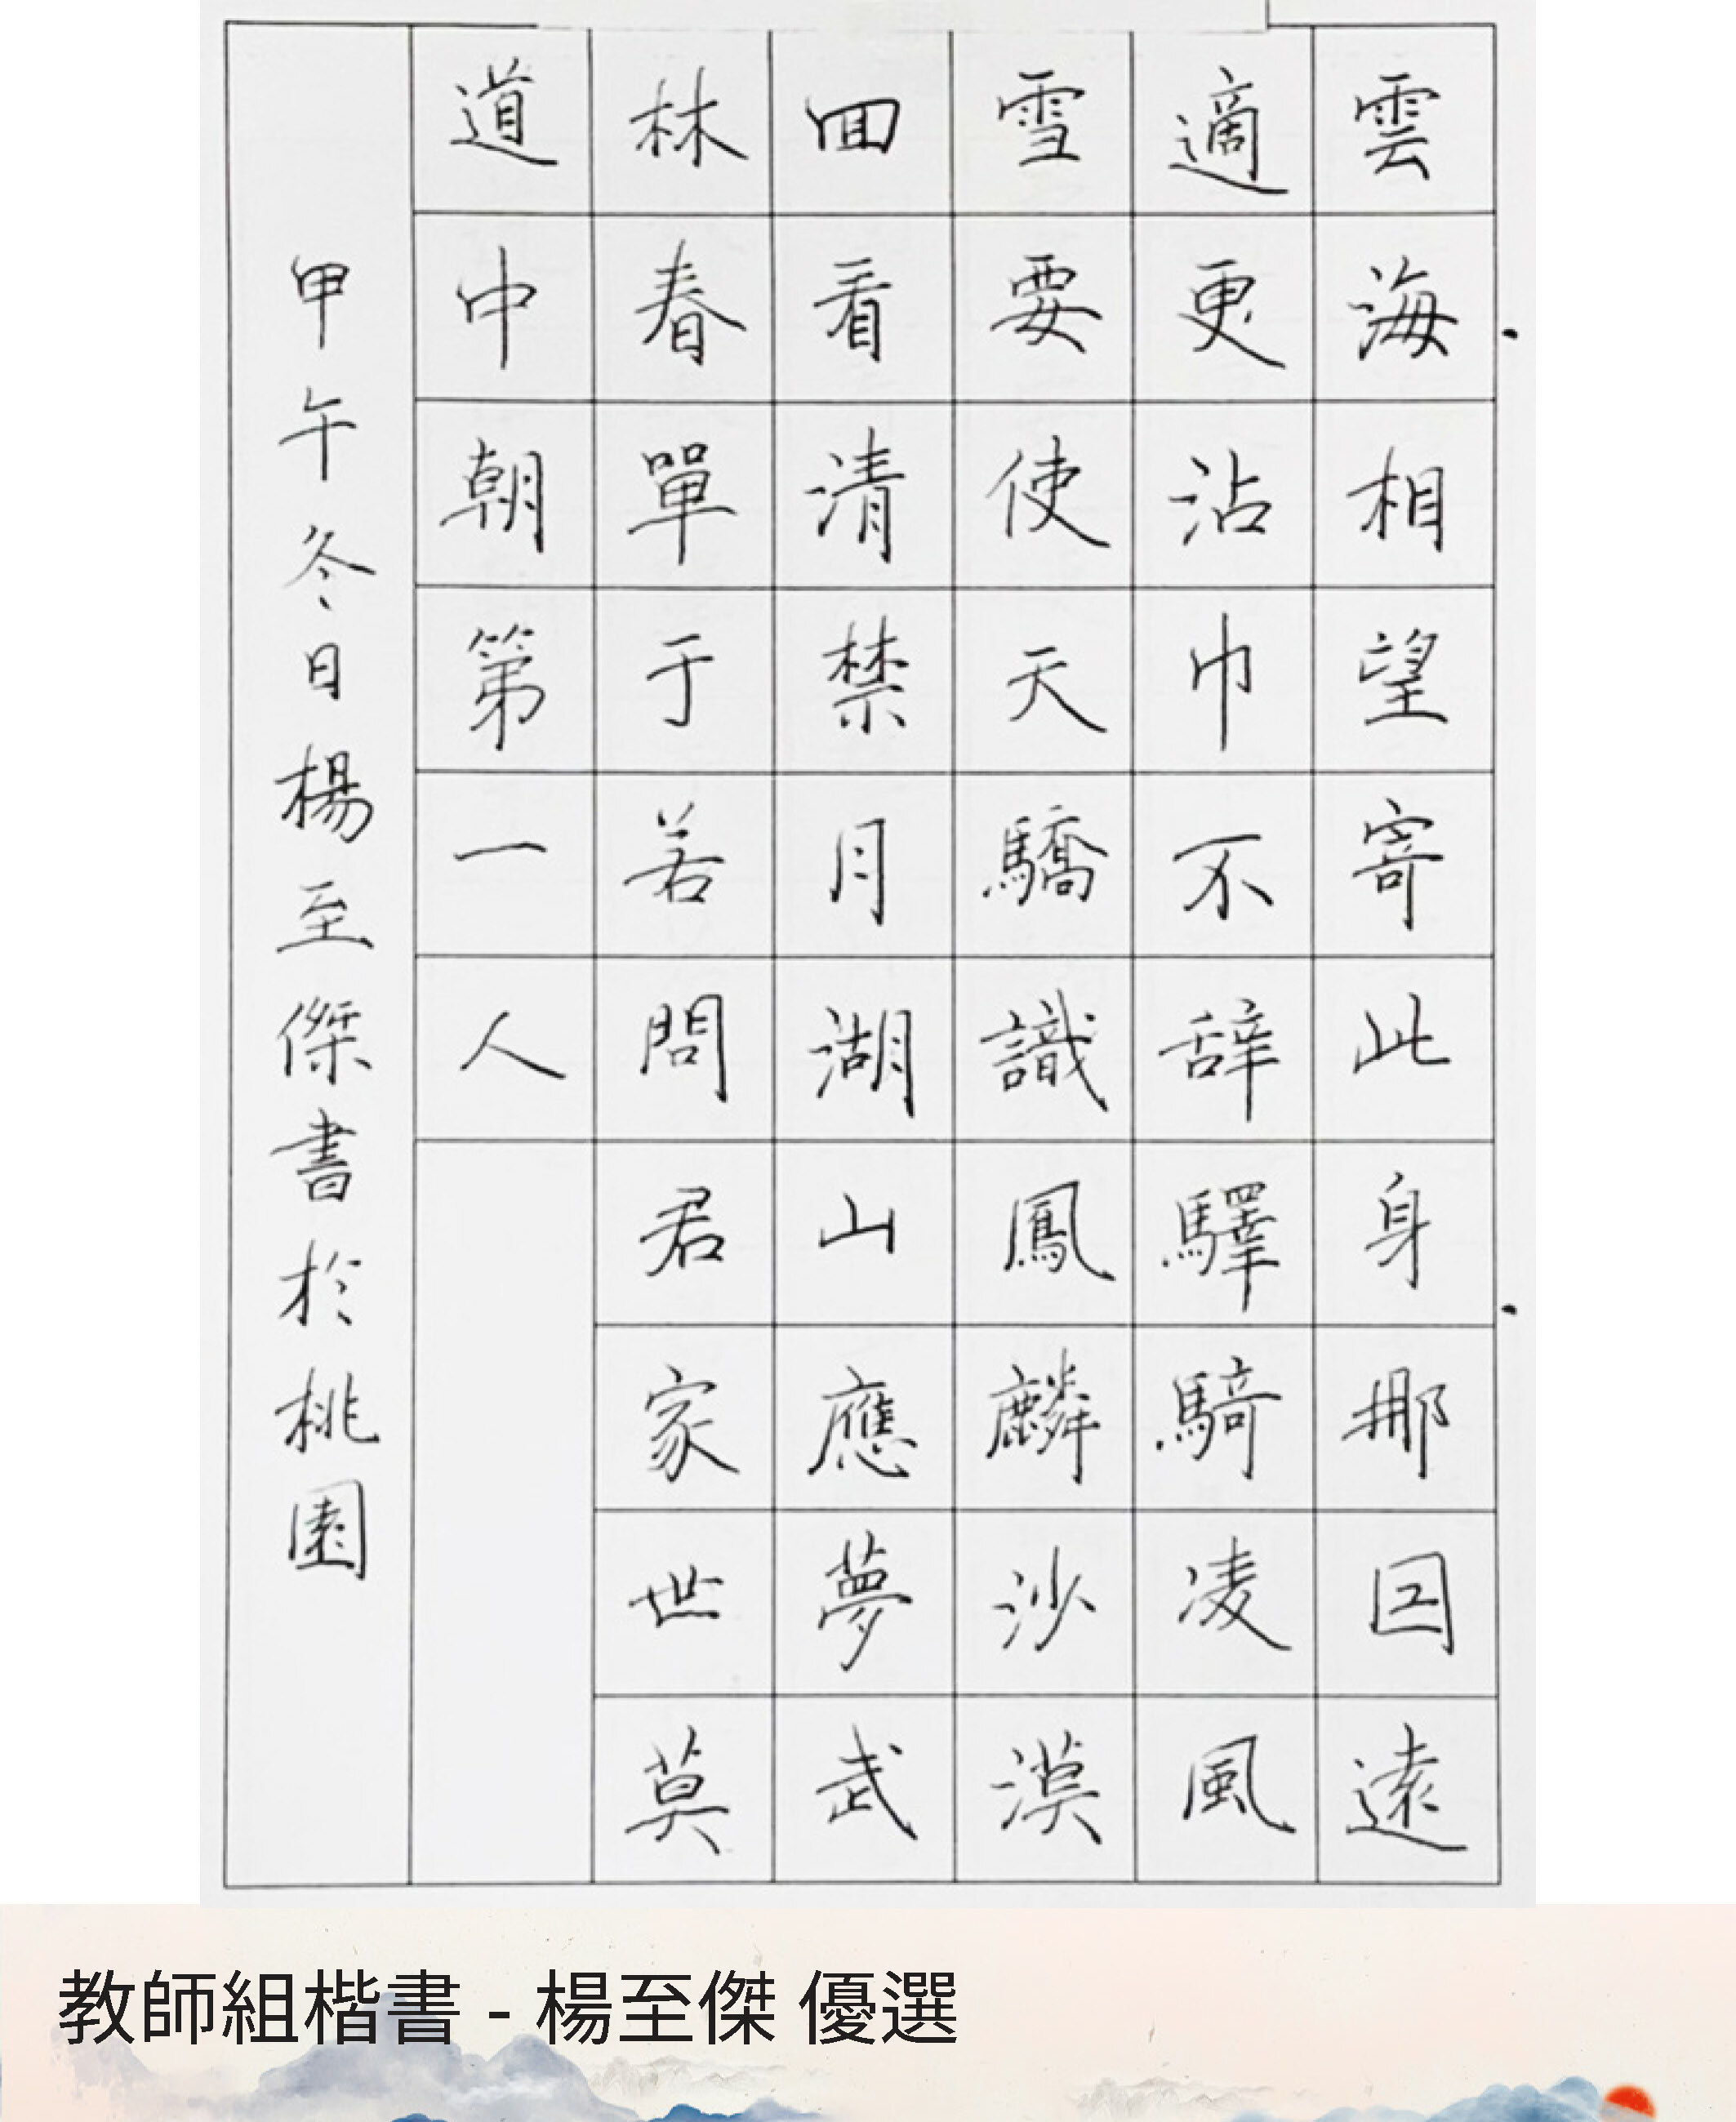 雲海相望寄此身那因遠
適更沾巾不辭驛騎凌風
雪要使天驕識鳳麟沙漠
回看清禁月湖山應夢武
林春單于若問君家世莫
道中朝第一人
甲午冬日楊至傑書於桃園
教師組楷書 - 楊至傑 優選